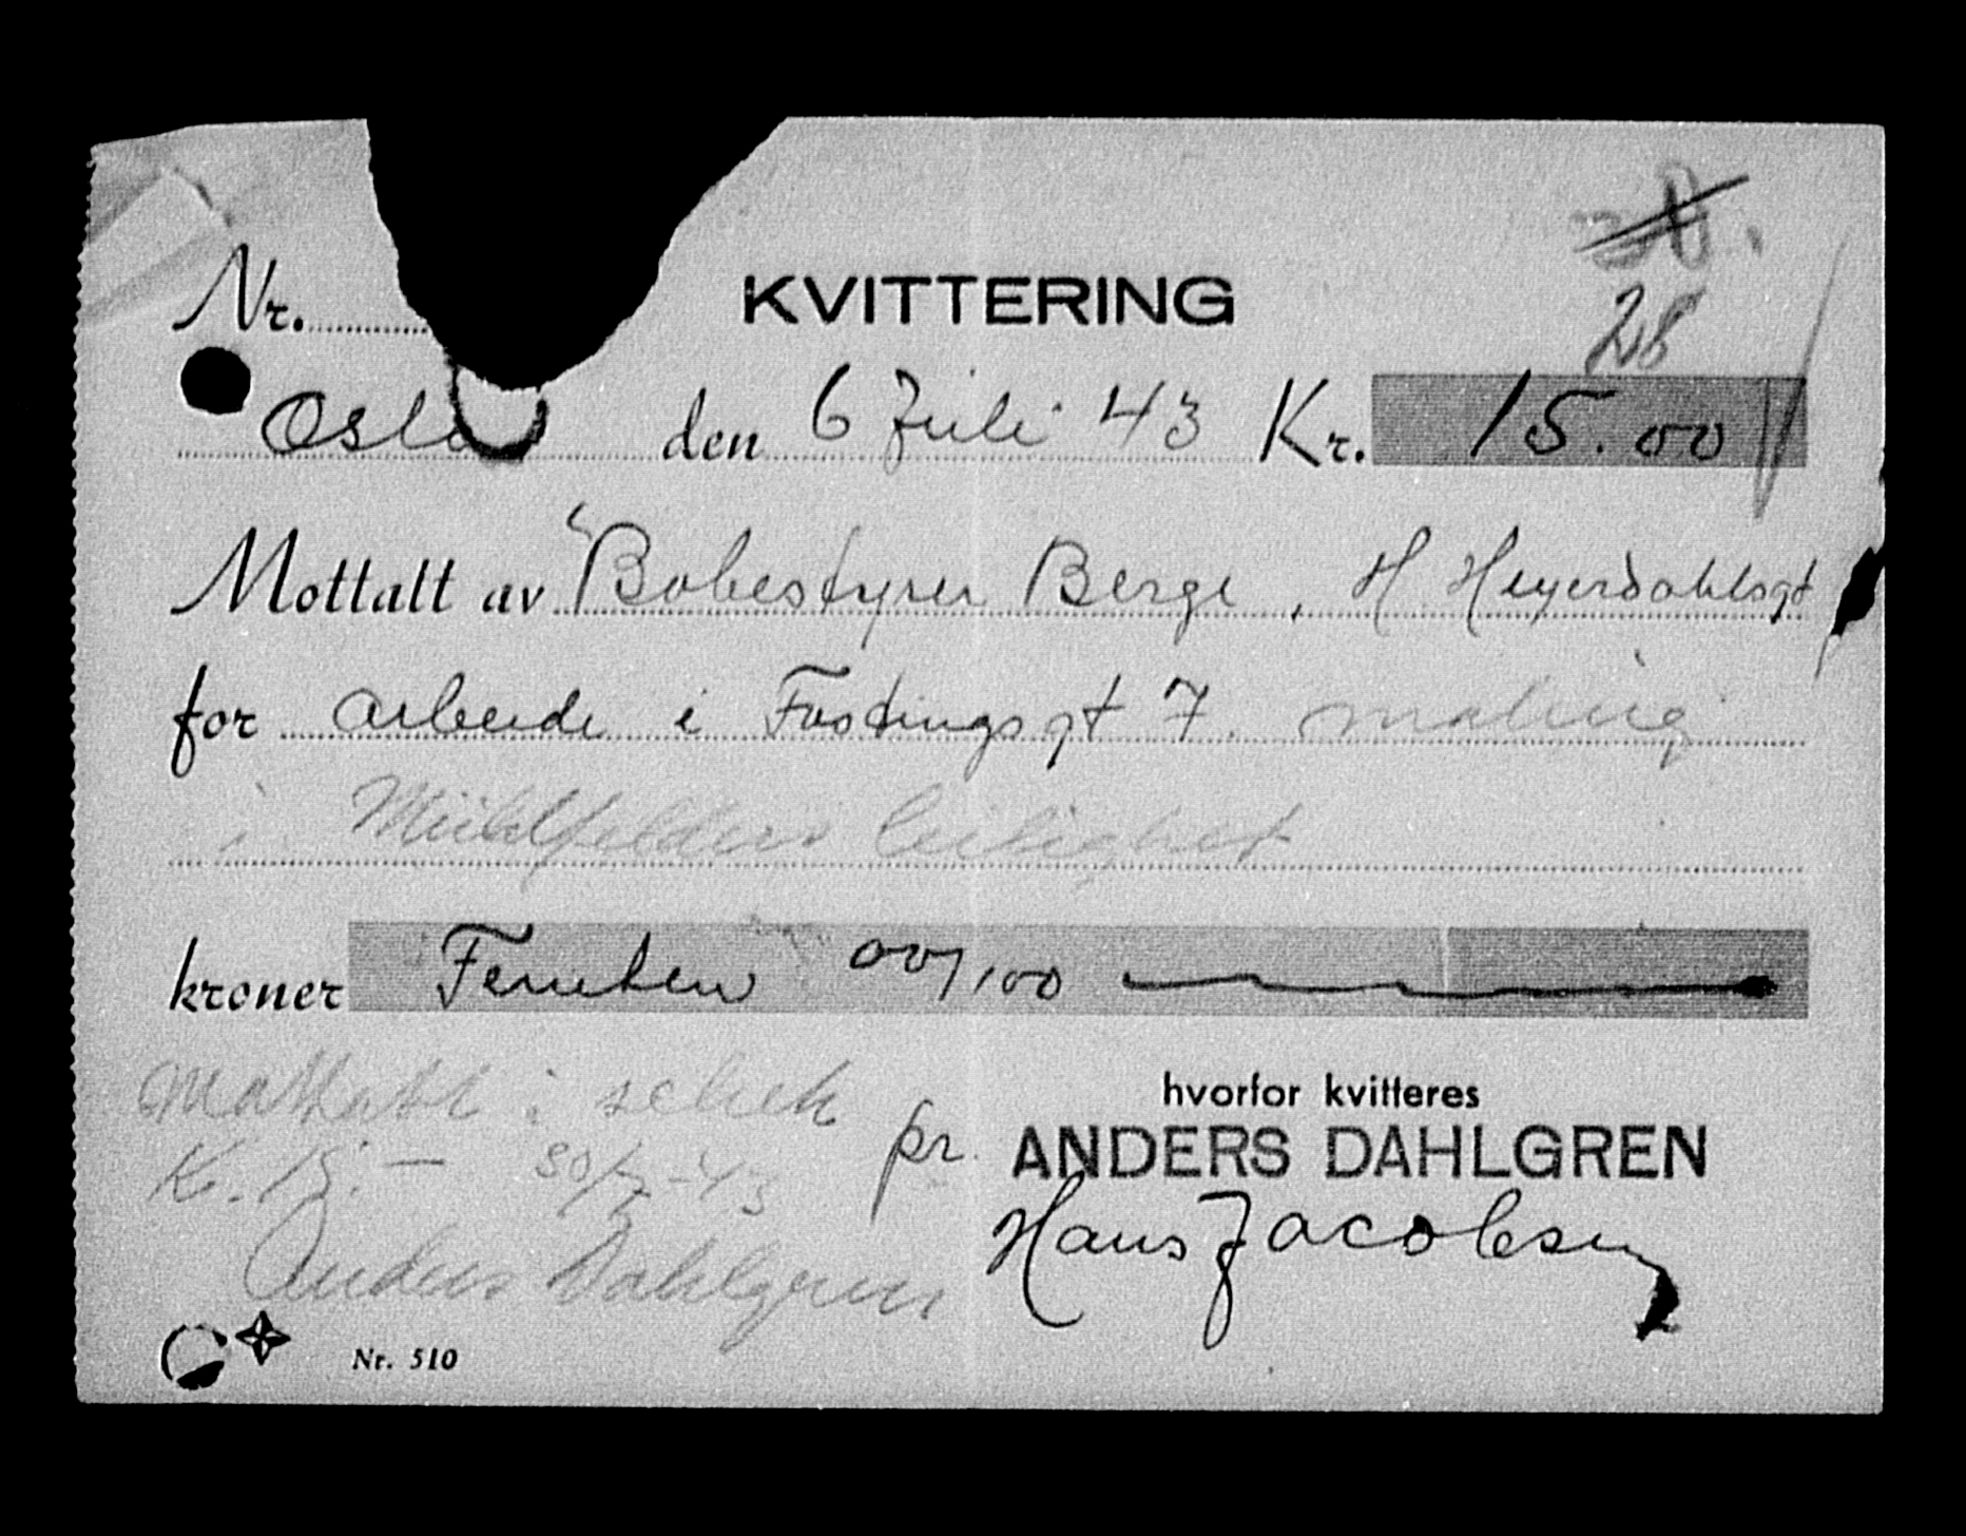 28
Nr. KVITTERING
Oslo den 6 Juli 43 Kr. 15.00
Mottatt av Bobestyrer Berge, H Heyerdahlsgt
for arbeide i Fastingsgt 7. maling
i Mühlfelders leilighet
kroner Femten 00/100
hvorfor kvitteres
Mottatt i schek
pr. ANDERS DAHLGREN
Kr. 15.— 30/7-43
Hans Jacobsen
Anders Dahlgren
Nr. 510